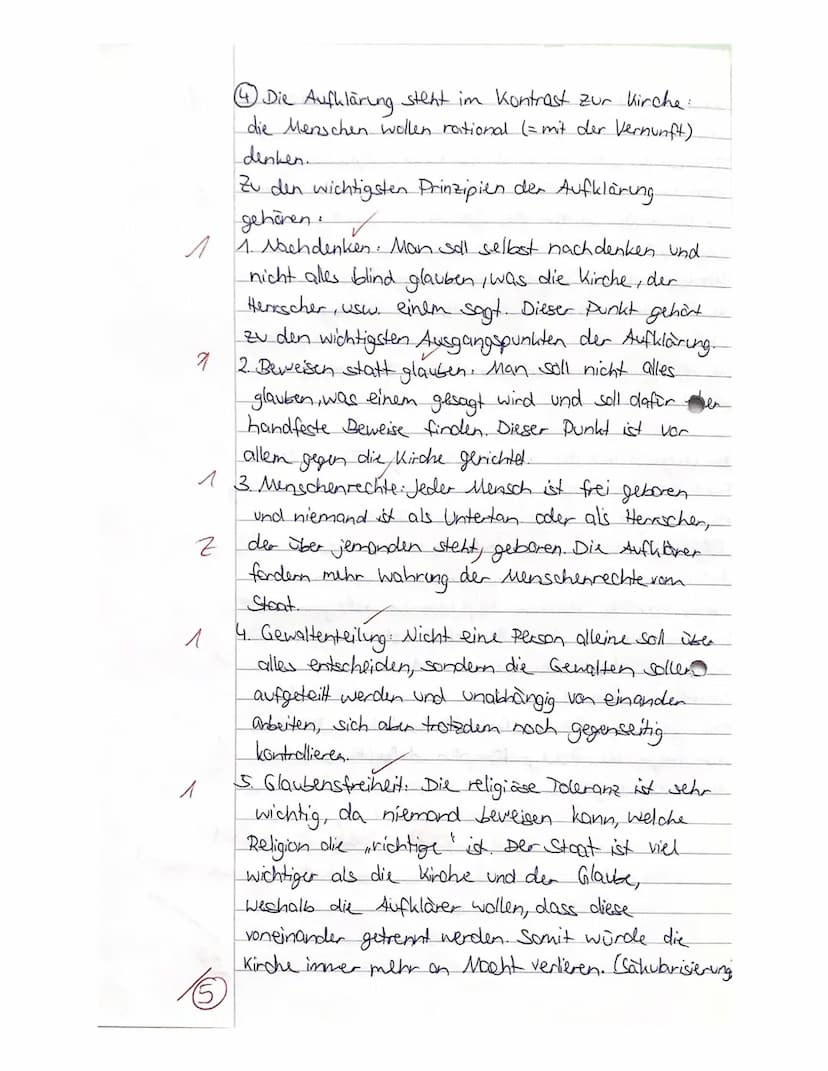 ④ Die Aufklärung steht im Kontrast zur Kirche:
die Menschen wollen rational (= mit der Vernunft)
denken.
Zu den wichtigsten Prinzipien der Aufklärung
gehören:
1 1. Nachdenken: Man soll selbst nachdenken und
nicht alles blind glauben, was die Kirche, der
Herrscher, usw. einem sagt. Dieser Punkt gehört
zu den wichtigsten Ausgangspunkten der Aufklärung.
1 2. Beweisen statt glauben: Man soll nicht alles
glauben, was einem gesagt wird und soll dafür
handfeste Beweise finden. Dieser Punkt ist vor
allem gegen die Kirche gerichtet.
1 3. Menschenrechte: Jeder Mensch ist frei geboren
und niemand ist als Untertan oder als Herrscher,
Z der über jemanden steht, geboren. Die Aufklärer
fordern mehr Wahrung der Menschenrechte vom
Staat.
1 4. Gewaltenteilung: Nicht eine Person alleine soll über
alles entscheiden, sondern die Gewalten sollen
aufgeteilt werden und unabhängig von einander
arbeiten, sich aber trotzdem noch gegenseitig
kontrollieren.
1 5. Glaubensfreiheit: Die religiöse Toleranz ist sehr
wichtig, da niemand beweisen kann, welche
Religion die „richtige" ist. Der Staat ist viel
wichtiger als die Kirche und der Glaube,
weshalb die Aufklärer wollen, dass diese
voneinander getrennt werden. Somit würde die
Kirche immer mehr an Macht verlieren. (Säkularisierung
/5